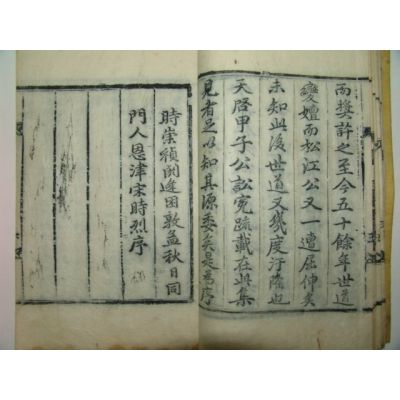 而奬許之至今五十餘年世道
變嬗而松江公又一遭屈伸矣
未知此後世道又幾度汙隆也
天啓甲子公訟寃疏載在此集
見者足以知其源委矣是爲序
時崇禎閼逢困敦孟秋日同
門人恩津宋時烈序